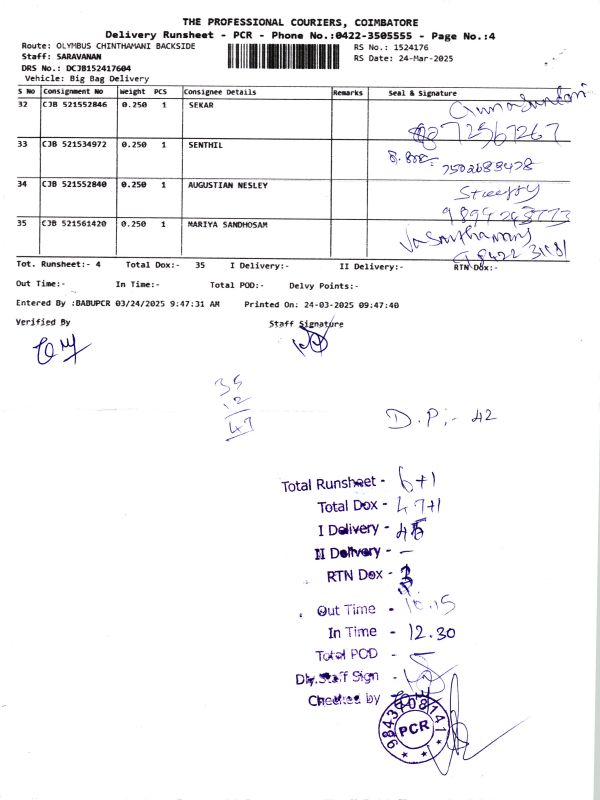 THE PROFESSIONAL COURIERS, COIMBATORE
Delivery Runsheet - PCR - Phone No.:0422-3505555 - Page No.:4
Route: OLYMBUS CHINTHAMANI BACKSIDE RS No.: 1524176
Staff: SARAVANAN RS Date: 24-Mar-2025
DRS No.: DCJB152417604
Vehicle: Big Bag Delivery
S No Consignment No Weight PCS Consignee Details Remarks Seal & Signature
32 CJB 521552846 0.250 1 SEKAR
72567267
33 CJB 521534972 0.250 1 SENTHIL
7502683478
34 CJB 521552840 0.250 1 AUGUSTIAN NESLEY
35 CJB 521561420 0.250 1 MARIYA SANDHOSAM
Tot. Runsheet:- 4 Total Dox:- 35 I Delivery:- II Delivery:- RTN Dox:-
Out Time:- In Time:- Total POD:- Delvy Points:-
Entered By :BABUPCR 03/24/2025 9:47:31 AM Printed On: 24-03-2025 09:47:40
Verified By Staff Signature
35
12
47
D.P:- 42
Total Runsheet - 6+1
Total Dox - 47+1
I Delivery -
II Delivery - -
RTN Dox -
Out Time - 10.15
In Time - 12.30
Total POD -
Dly.Staff Sign -
Checked by
PCR